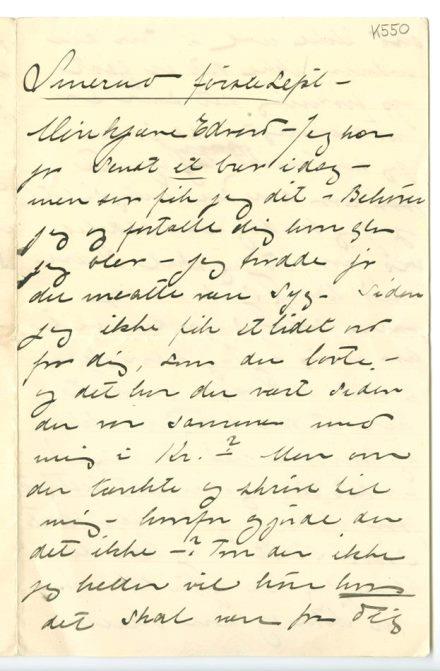 K550
Smerud første Sept –
Min kjære Edvard – Jeg har
jo sendt et brev idag –
men saa fik jeg dit – Behøver
jeg og fortælle dig hvor glad
jeg blev – jeg trodde jo
du maatte være syg – siden
jeg ikke fik et lidet ord
fra dig, som du lovte –
og det har du vært siden
du var sammen med
mig i Kr. ? Men om
du tænkte og skrive til
mig – hvorfor gjorde du
det ikke – ? Tror du ikke
jeg heller vil høre
det skal være fra dig